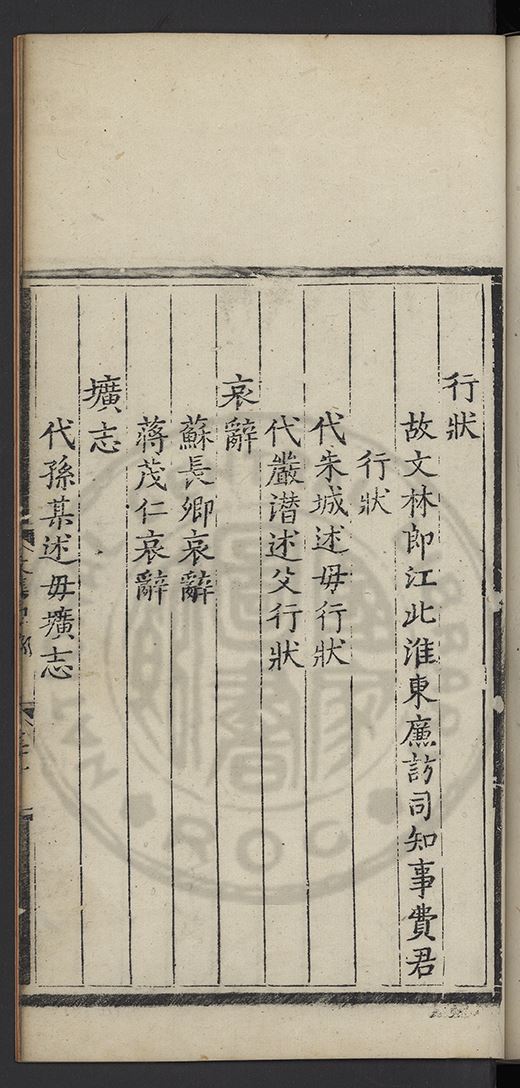 行狀
故文林郎江北淮東廉訪司知事費君
行狀
代朱城述母行狀
代嚴潛述父行狀
哀辭
蘇長卿哀辭
蔣茂仁哀辭
壙志
代孫某述母壙志